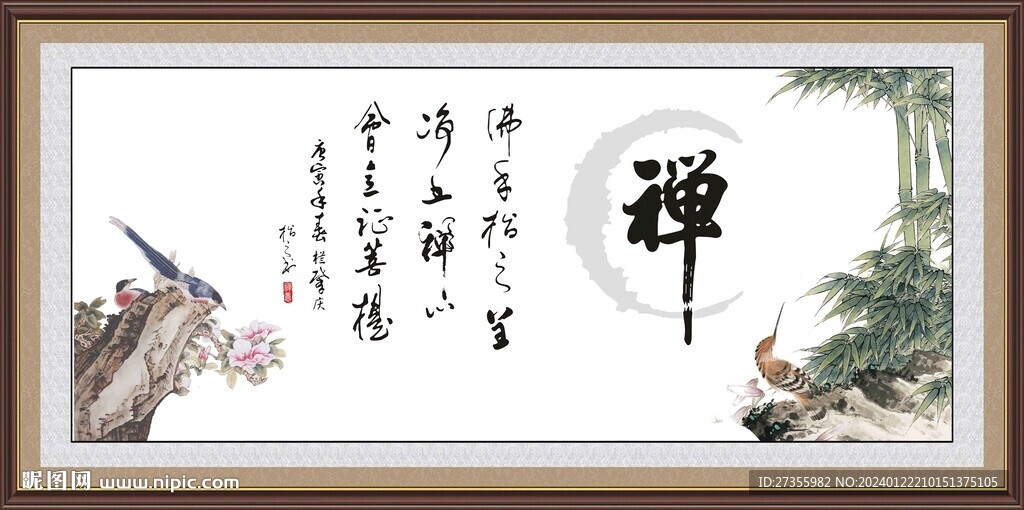 禅
佛手指之
禅心
會证菩
庚寅年春 肇庆
昵图网 www.nipic.com
ID:27355982 NO:20240122210151375105